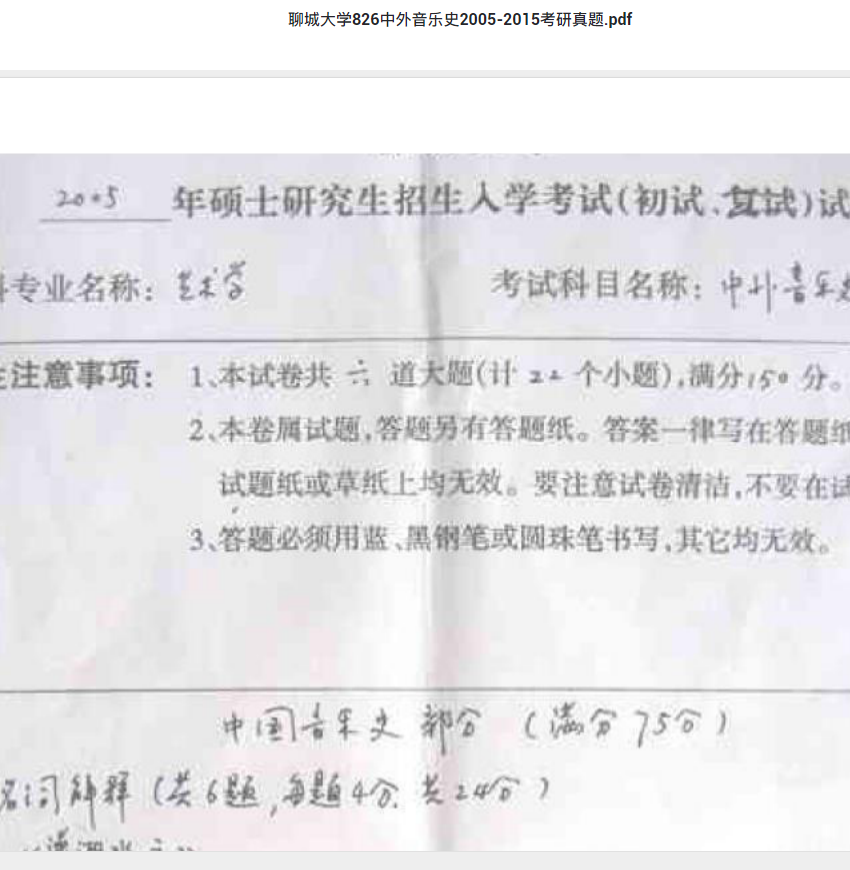 聊城大学826中外音乐史2005-2015考研真题.pdf
2005 年硕士研究生招生入学考试(初试、复试)试
专业名称：艺术学 考试科目名称：中外音乐史
注意事项： 1、本试卷共 六 道大题(计 22 个小题),满分150分。
2、本卷属试题,答题另有答题纸。答案一律写在答题纸
试题纸或草纸上均无效。要注意试卷清洁,不要在试
3、答题必须用蓝、黑钢笔或圆珠笔书写,其它均无效。
中国音乐史 部分 (满分75分)
名词解释 (共6题,每题4分.共24分)